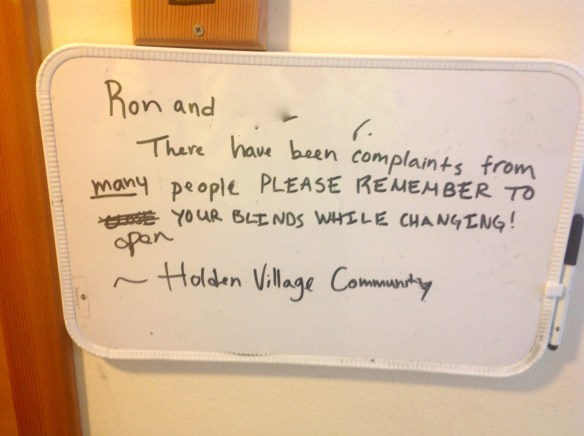 Ron and
There have been complaints from
many people PLEASE REMEMBER TO
CLOSE YOUR BLINDS WHILE CHANGING!
open
~ Holden Village Community